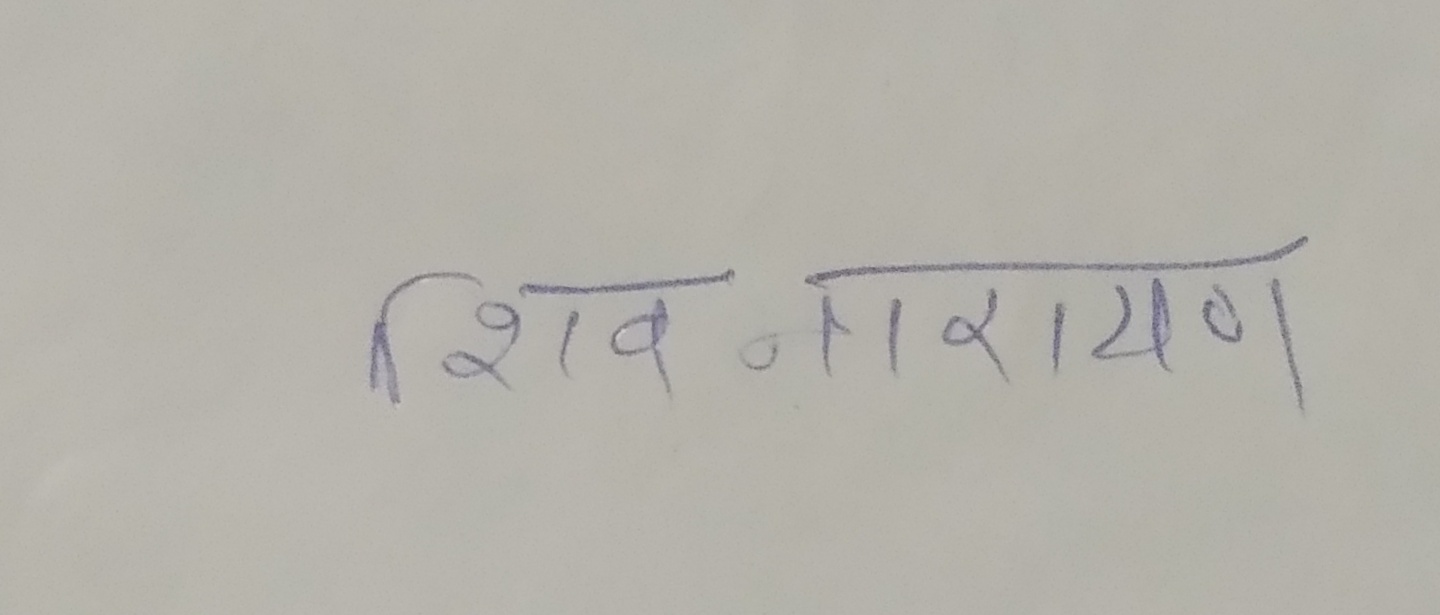 शिव नारायण